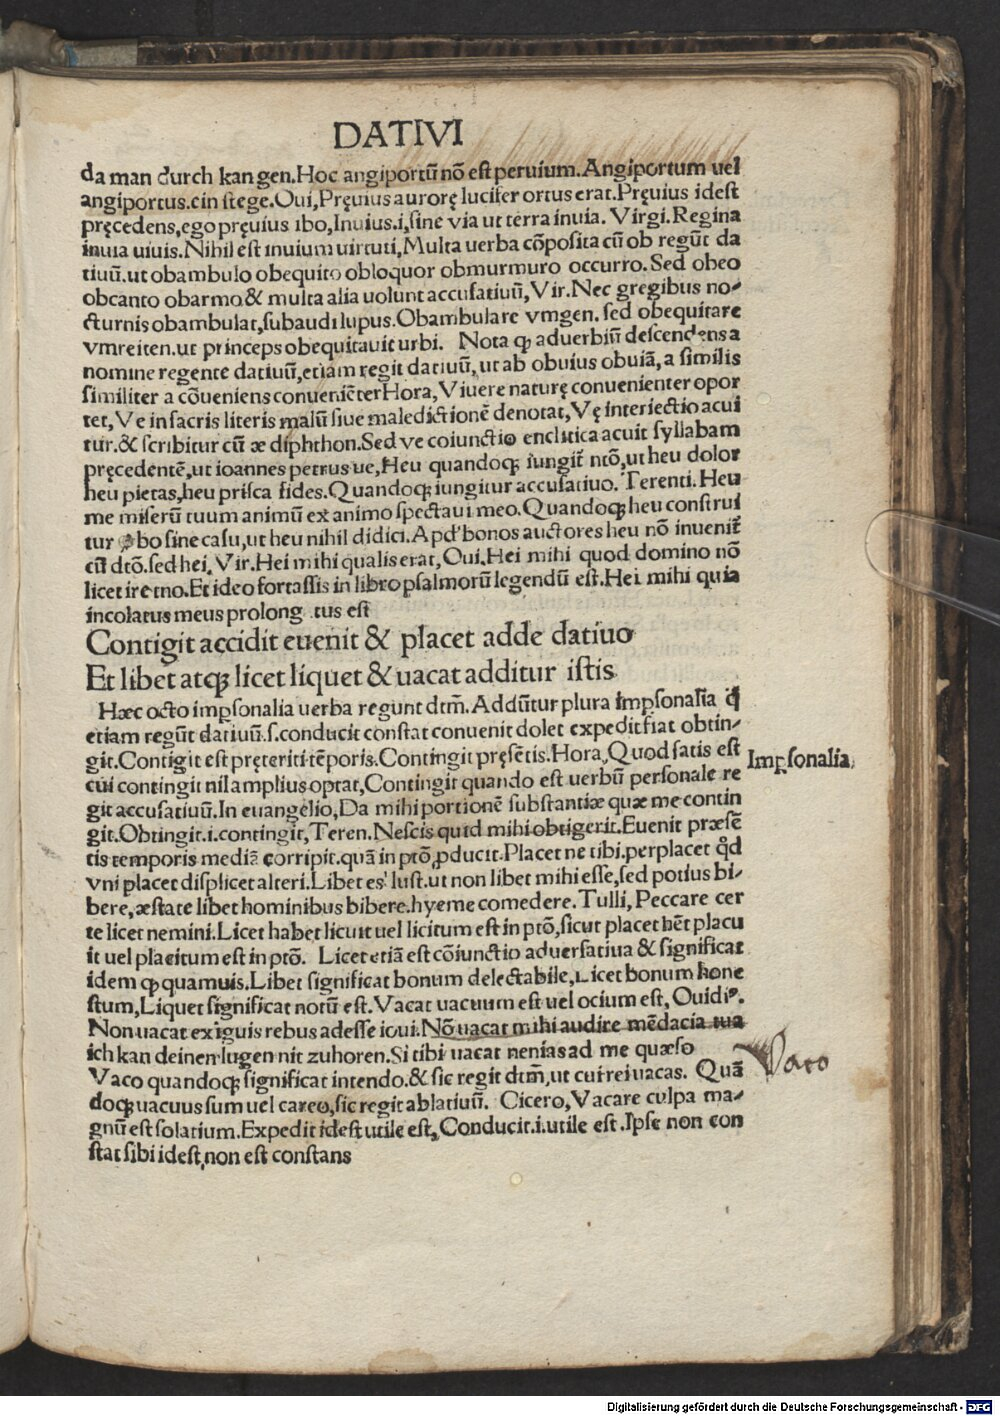 DATIVI
da man durch kan gen.Hoc angiportū nō est peruium.Angiportum uel
angiportus.ein stege.Oui,Pręuius aurorę lucifer ortus erat.Pręuius idest
pręcedens,ego pręuius ibo,Inuius.i,sine via ut terra inuia. Virgi.Regina
inuia uiuis.Nihil est inuium uirtuti,Multa uerba cōposita cū ob regūt da
tiuū.ut obambulo obequito obloquor obmurmuro occurro.Sed obeo
obcanto obarmo & multa alia uolunt accusatiuū,Vir.Nec gregibus no-
cturnis obambulat,subaudi lupus.Obambulare vmgen. sed obequitare
vmreiten.ut princeps obequitauit urbi. Nota ꝙ aduerbiū descendens a
nomine regente datiuū,etiam regit datiuū,ut ab obuius obuiā,a similis
similiter a cōueniens conueniēter Hora,Viuere naturę conuenienter opor
tet,Ve in sacris literis malū siue maledictionē denotat,Vę interiectio acui
tur.& scribitur cū æ diphthon.Sed ve coiunctio enclitica acuit syllabam
pręcedentē,ut ioannes petrus ue,Heu quandoqꝫ iungit̄ ntō,ut heu dolor
heu pietas,heu prisca fides.Quandoqꝫ iungitur accusatiuo. Terenti.Heu
me miserū tuum animū ex animo spectaui meo.Quandoqꝫ heu construi
tur bo sine casu,ut heu nihil didici.Apd' bonos auctores heu nō inuenit̄
cū dtō.sed hei, Vir.Hei mihi qualis erat,Oui.Hei mihi quod domino nō
licet ire tno.Et ideo fortassis in libro psalmorū legendū est.Hei mihi quia
incolatus meus prolong tus est
Contigit accidit euenit & placet adde datiuo
Et libet atqꝫ licet liquet & uacat additur istis
Hæc octo imꝑsonalia uerba regunt dtm̄.Addūtur plura imꝑsonalia q̄
etiam regūt datiuū.s.conducit constat conuenit dolet expedit fiat obtin-
git.Contigit est pręteriti tēporis.Contingit pręsētis.Hora,Quod satis est
cui contingit nil amplius optat,Contingit quando est uerbū personale re
git accusatiuū.In euangelio,Da mihi portionē substantiæ quæ me contin
git.Obtingit.i.contingit,Teren.Nescis quid mihi obtigerit.Euenit præsē
tis temporis mediā corripit.quā in ptō ꝓducit.Placet ne tibi.perplacet qd̊
vni placet displicet alteri.Libet es' lust.ut non libet mihi esse,sed potius bi-
bere,æstate libet hominibus bibere.hyeme comedere. Tulli, Peccare cer
te licet nemini.Licet habet licuit uel licitum est in ptō,sicut placet hēt placu
it uel placitum est in ptō. Licet etiā est cōiunctio aduersatiua & significat
idem ꝙ quamuis.Libet significat bonum delectabile,Licet bonum hone
stum,Liquet significat notū est.Vacat uacuum est uel ocium est, Ouidiꝰ.
Non uacat exiguis rebus adesse ioui.Nō uacat mihi audire mēdacia tua
ich kan deinen lugen nit zuhoren.Si tibi uacat nenias ad me quæso
Vaco quandoqꝫ significat intendo.& sic regit dtm̄,ut cui rei uacas. Quā
doqꝫ uacuus sum uel careo,sic regit ablatiuū. Cicero,Vacare culpa ma-
gnū est solatium.Expedit idest utile est, Conducit.i.utile est.Ipse non con
stat sibi idest,non est constans
Imꝑsonalia,
Vaco
Digitalisierung gefördert durch die Deutsche Forschungsgemeinschaft - DFG